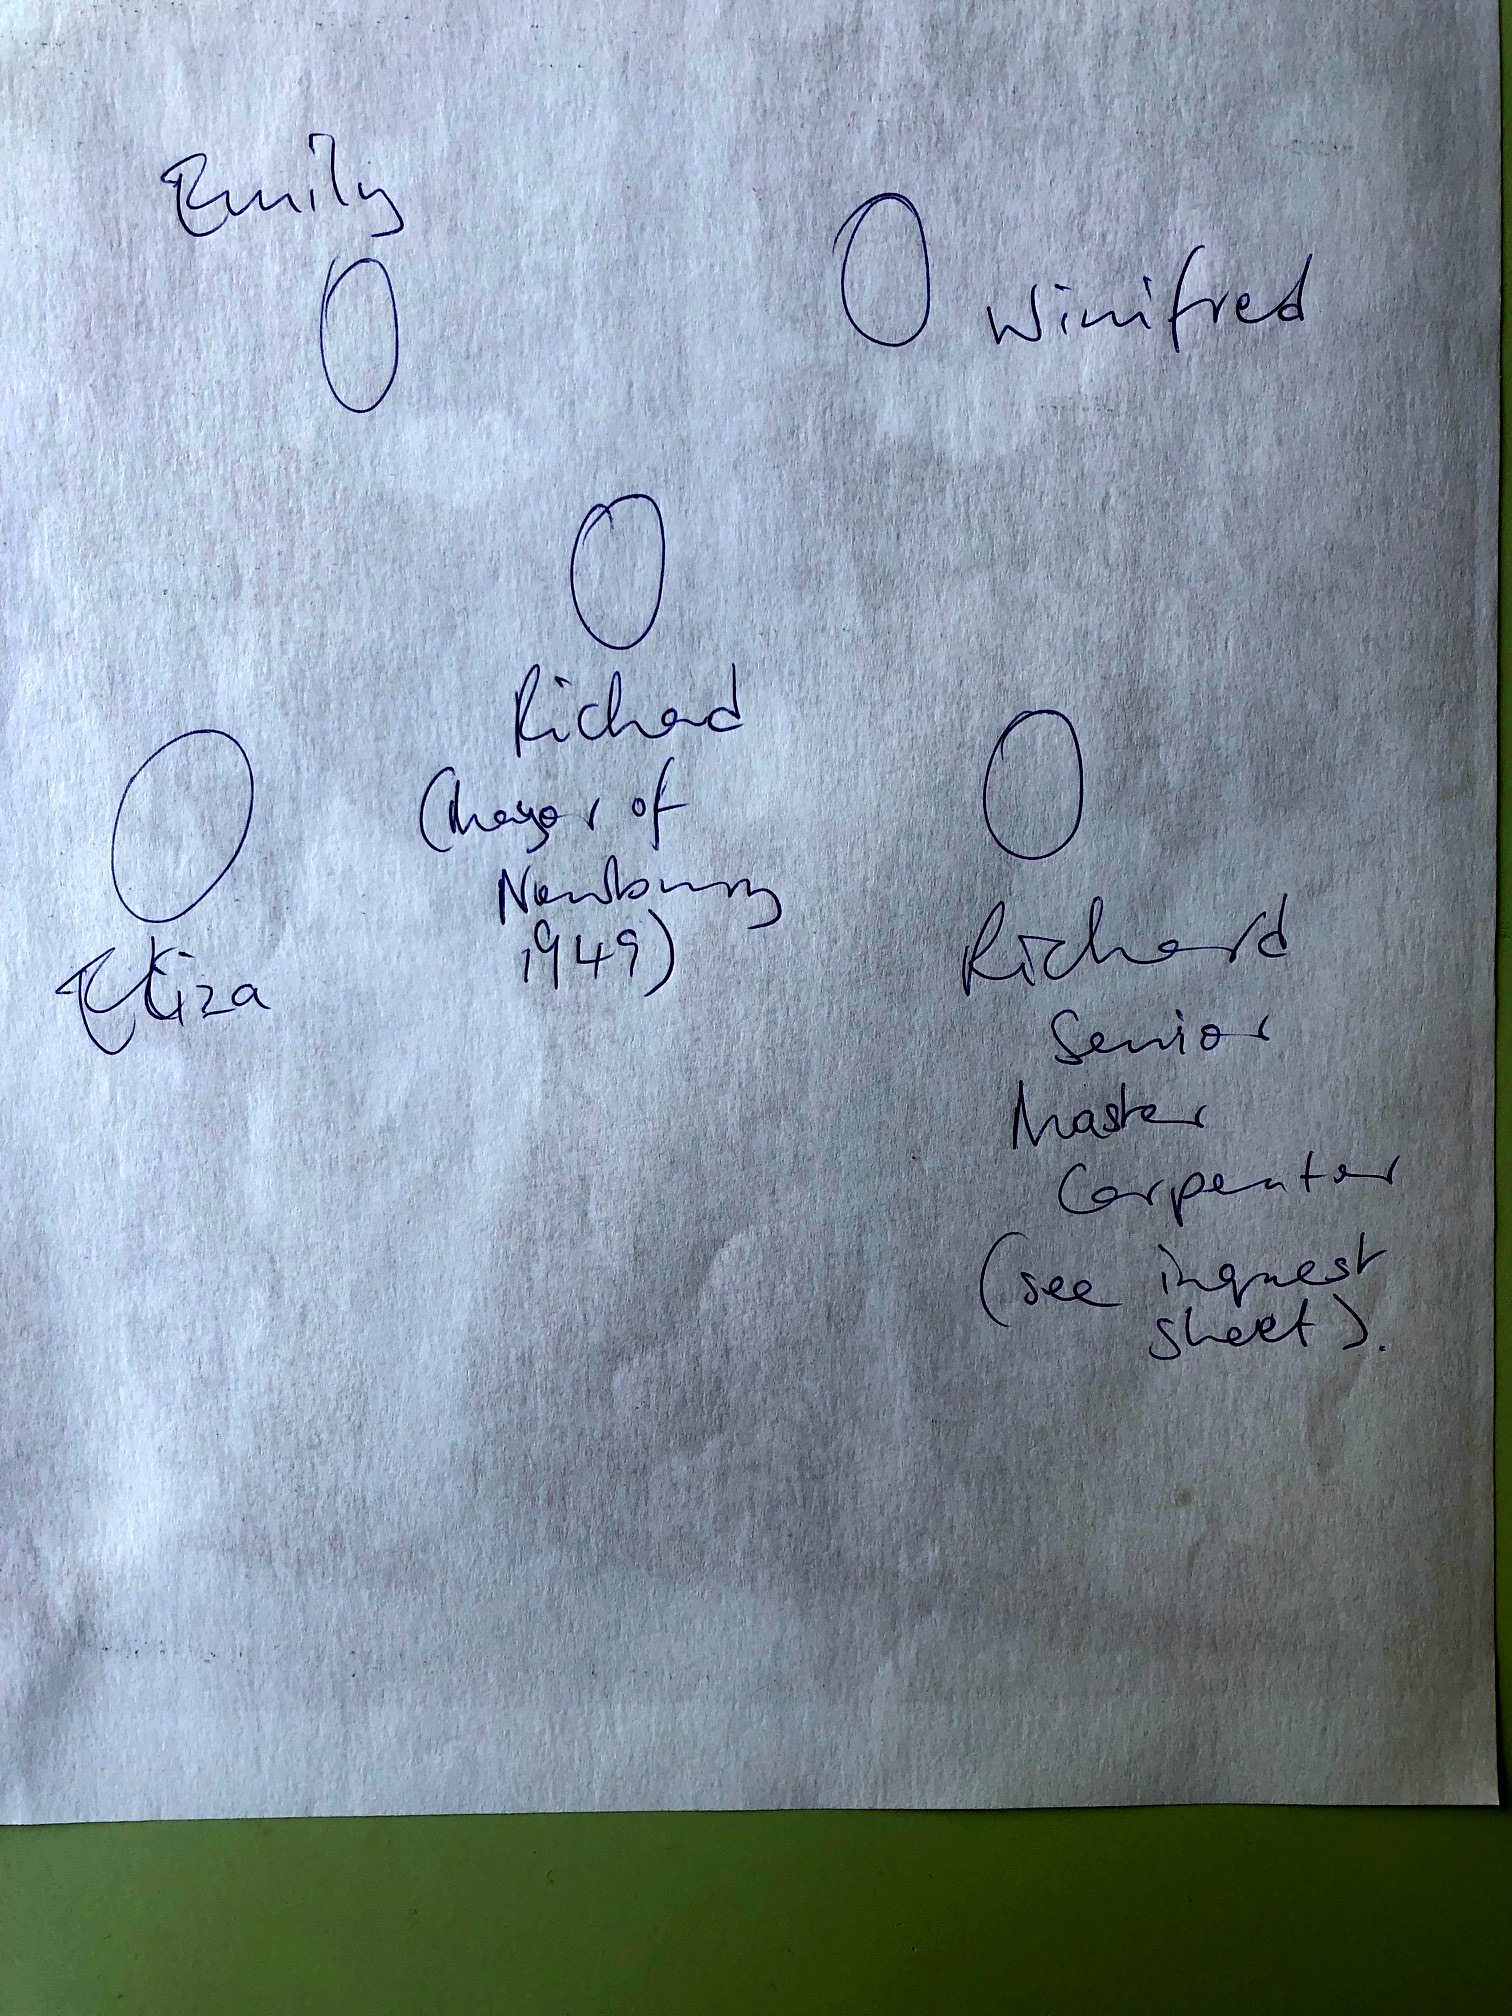 Emily
Winifred
Richard
(Mayor of
Newbury
1949)
Eliza
Richard
Senior
Master
Carpenter
(see inquest
sheet).